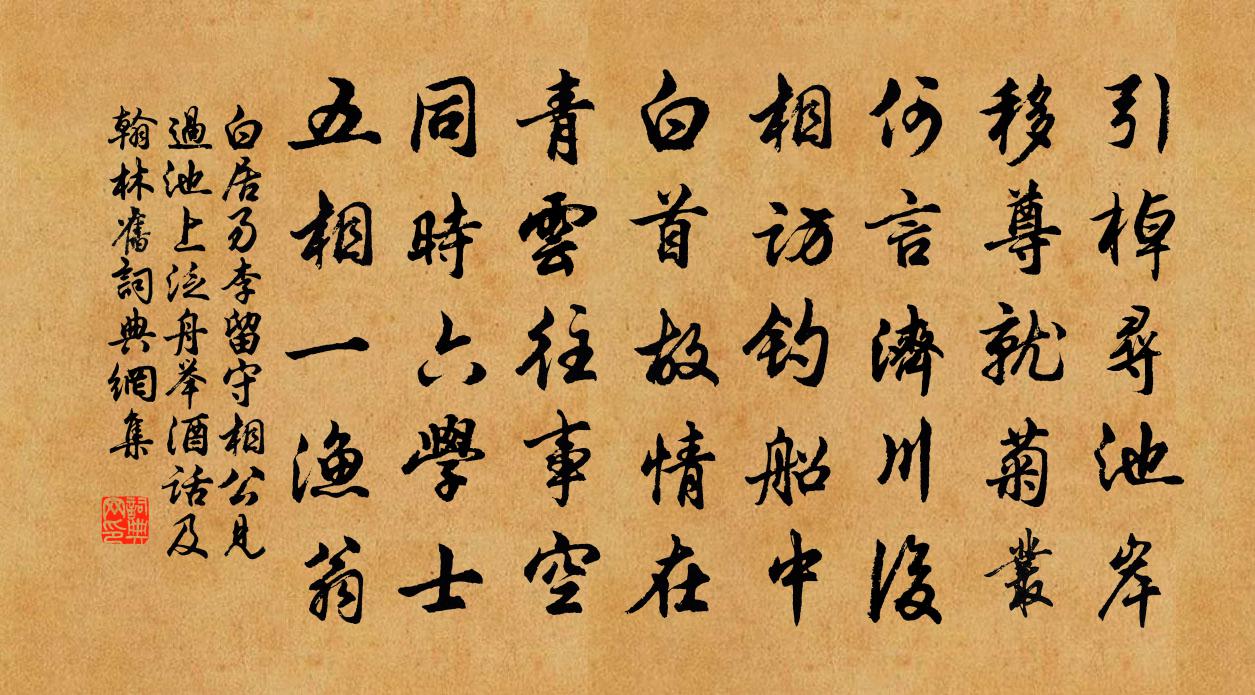 引棹尋池岸
移尊就菊叢
何言濟川後
相訪釣船中
白首故情在
青雲往事空
同時六學士
五相一漁翁
白居易李留守相公見
過池上泛舟举酒話及
翰林舊詞典網集
詞典網印